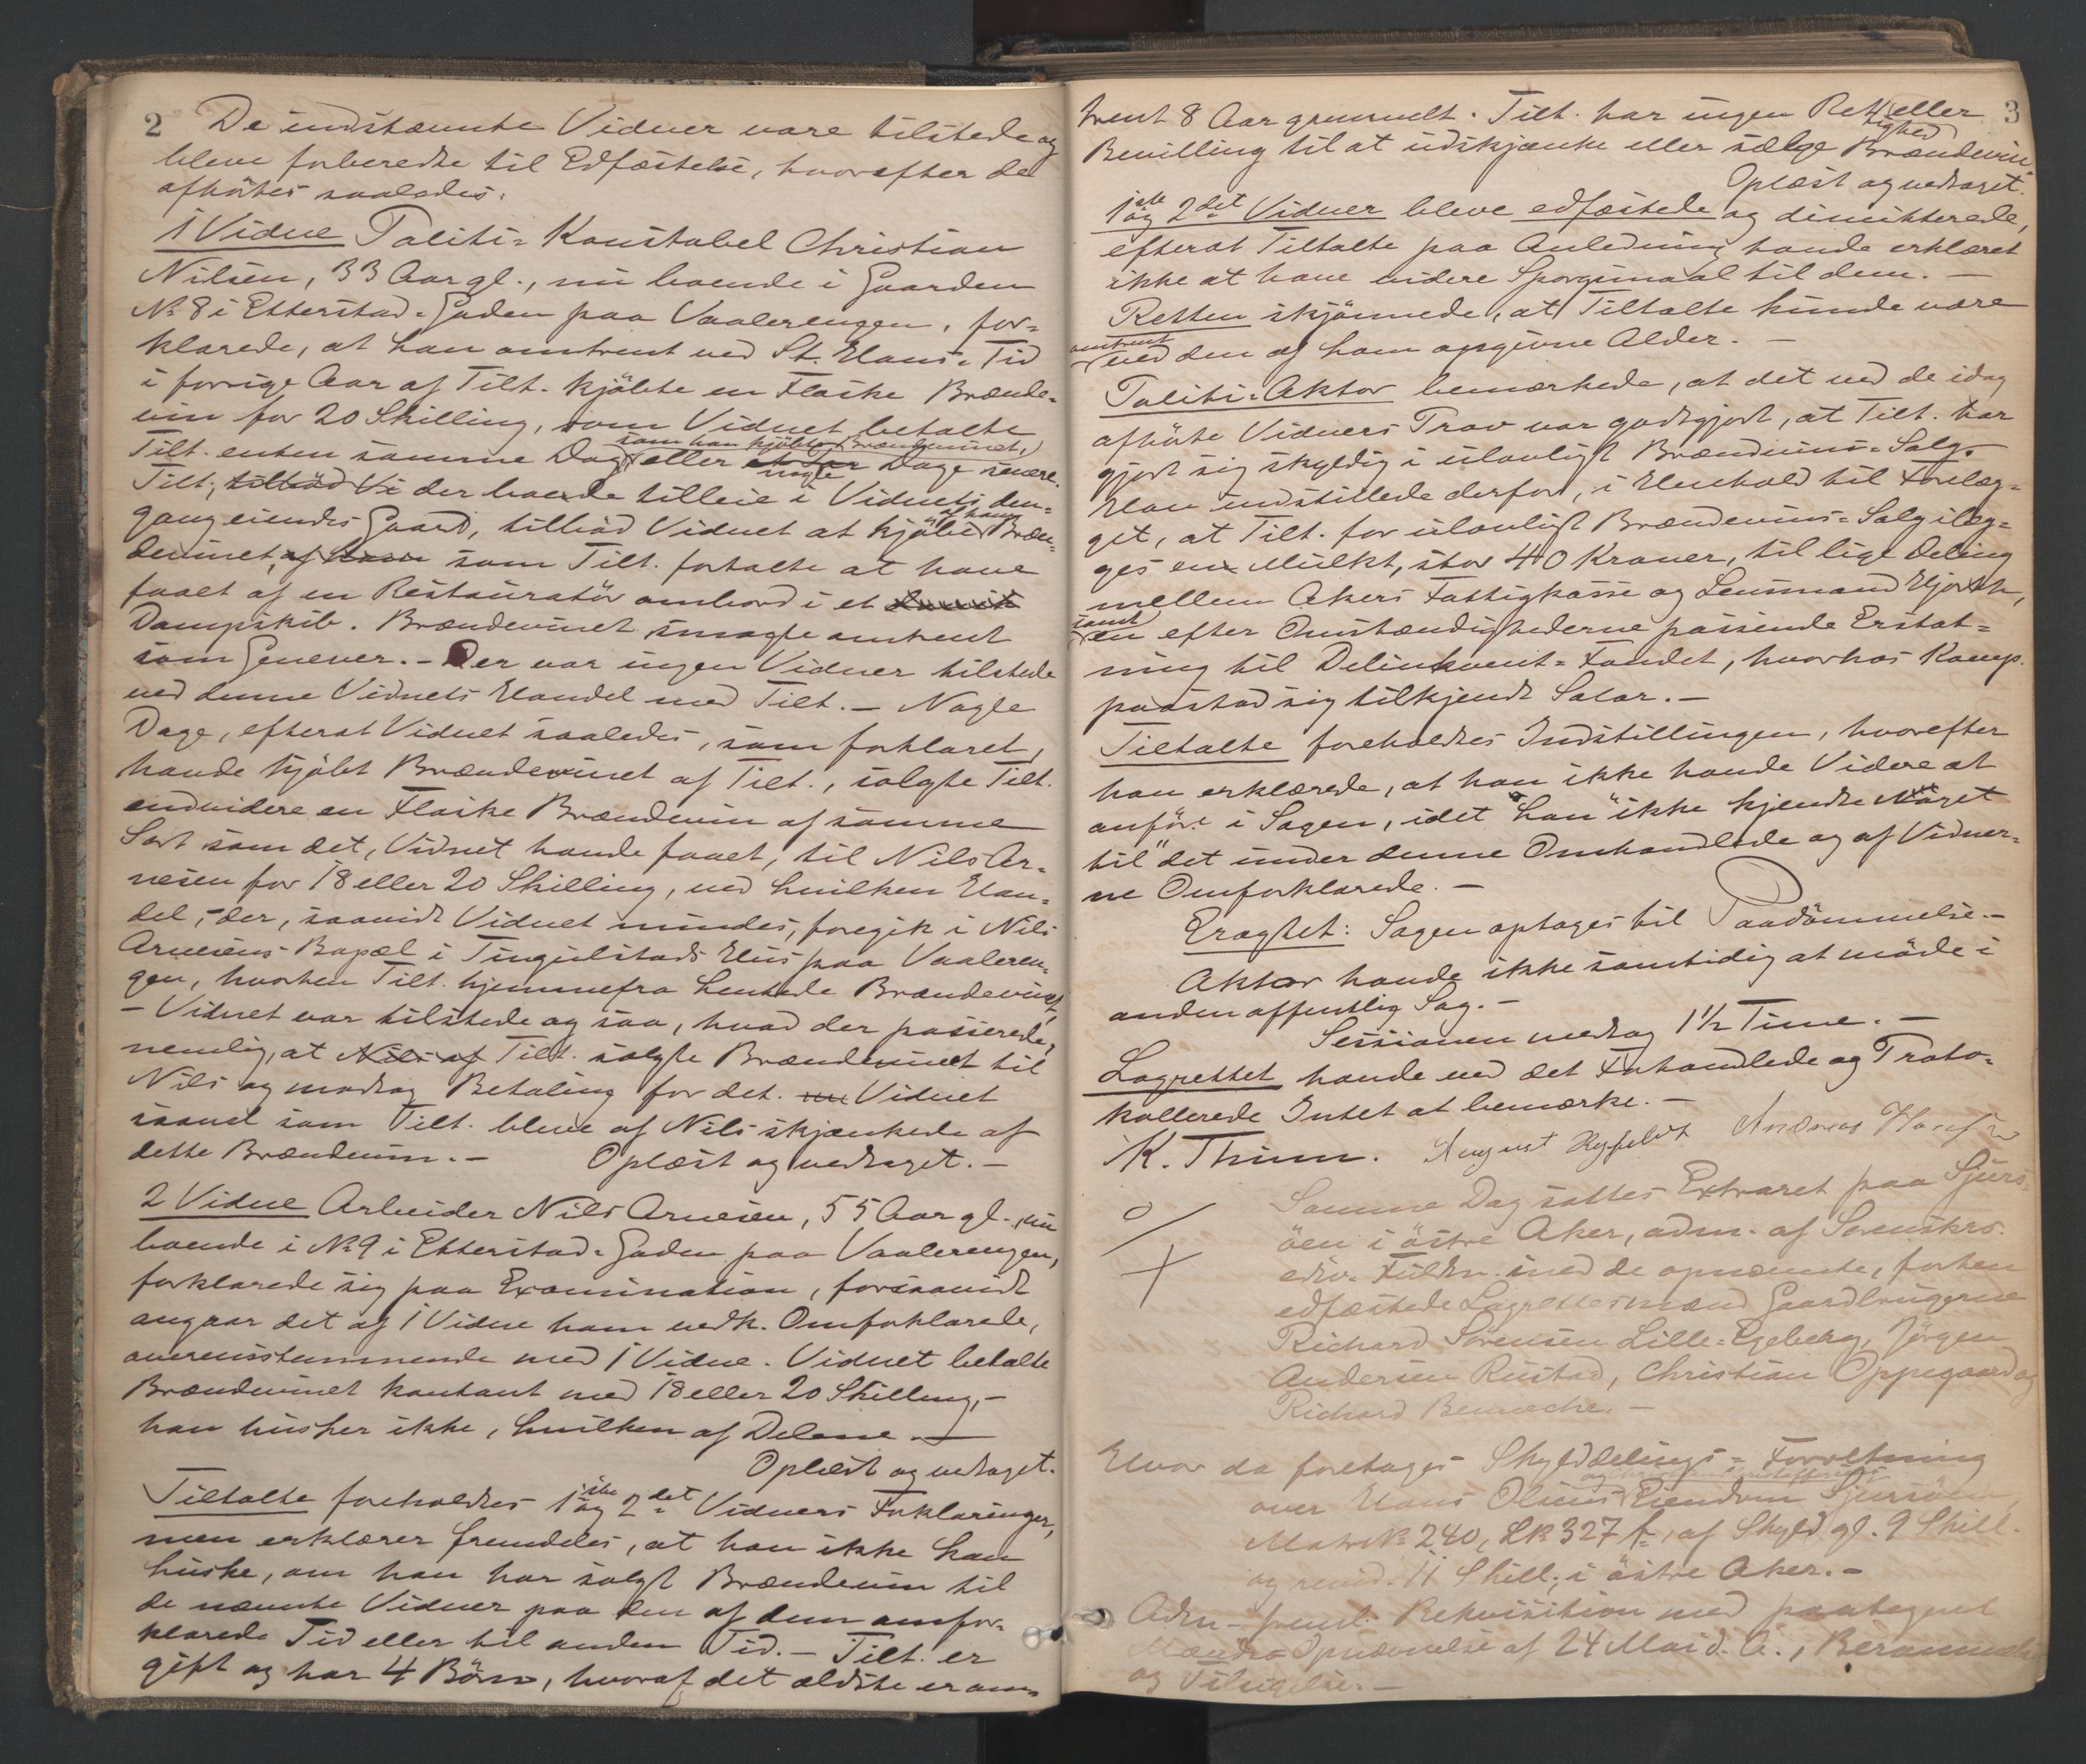 2
De indstævnte Vidner vare tilstede og
bleve forberedte til Edfæstelse, hvorefter de
afhörtes saaledes:
1 Vidne Politi-Konstabel Christian
Nilsen, 33 Aar gl., nu boende i Gaarden
No 8 i Etterstad-Gaden paa Vaalerengen, for-
klarede, at han omtrent ved St. Hans-Tid
i forrige Aar af Tilt. kjöbte en Flaske Brænde-
vin for 20 Skilling, som Vidnet betalte
som han kjöbte Brændevinet,
Tilt. enten samme Dag eller et Par nogle Dage senere.
Tilt., tilböd Vi der boede tilleie i Vidnets den-
gang eiendes Gaard, tilböd Vidnet at kjöbe af ham Bræn-
devinet, af ham som Tilt. fortalte at have
faaet af en Restauratör ombord i et
Dampskib. Brændevinet smagte omtrent
som Genever. - Der var ingen Vidner tilstede
ved denne Vidnets Handel med Tilt. - Nogle
Dage, efterat Vidnet saaledes, som forklaret,
havde kjöbt Brændevinet af Tilt., solgte Tilt.
endvidere en Flaske Brændevin af samme
Sort som det, Vidnet havde faaet, til Nils Ar-
nesen for 18 eller 20 Skilling, ved hvilken Han-
del, - der, saavidt Vidnet mindes, foregik i Nils
Arnesens Bopæl i Tingulstads Hus paa Vaaleren-
gen, hvorhen Tilt. hjemmefra hentede Brændevinet,
- Vidnet var tilstede og saa, hvad der passerede,
nemlig, at Nils af Tilt. solgte Brændevinet til
Nils og modtog Betaling for det. Vidnet
saavel som Tilt. bleve af Nils skjænkede af
dette Brændevin. - Oplæst og vedtaget. -
2 Vidne Arbeider Nils Arnesen, 55 Aar gl., nu
boende i No 9 i Etterstad-Gaden paa Vaalerengen,
forklarede sig paa Examination, forsaavidt
angaar det af 1 Vidne ham vedk. Omforklarede,
overensstemmende med 1 Vidne. Vidnet betalte
Brændevinet kontant med 18 eller 20 Skilling, -
han husker ikke, hvilken af Delene. -
Oplæst og vedtaget.
Tiltalte foreholdtes 1ste og 2det Vidners Forklaringer,
men erklærer fremdeles, at han ikke kan
huske, om han har solgt Brændevin til
de nævnte Vidner paa den af dem omfor-
klarede Tid eller til anden Tid. - Tilt. er
gift og har 4 Börn, hvoraf det ældste er om-
3
trent 8 Aar gammelt. Tilt. har ingen Rettighed eller
Bevilling til at udskjænke eller sælge Brændevin.
Oplæst og vedtaget.
1ste og 2det Vidner bleve edfæstede og dimitterede,
efterat Tiltalte paa Anledning havde erklæret
ikke at have videre Spörgsmaal til dem. -
Retten skjönnede, at Tiltalte kunde være
omtrent ved den af ham opgivne Alder. -
Politi-Aktor bemærkede, at det ved de idag
afhörte Vidners Prov var godtgjort, at Tilt. har
gjort sig skyldig i ulovligt Brændevins-Salg.
Han indstillede derfor, i Henhold til Forelæg-
get, at Tilt. for ulovligt Brændevins-Salg ilæg-
ges en Mulkt, stor 40 Kroner, til lige Deling
mellem Akers Fattigkasse og Lensmand Hjorth,
samt en efter Omstændighederne passende Erstat-
ning til Delinkvent-Fondet, hvorhos Komp.
paastod sig tilkjendt Salær. -
Tiltalte foreholdtes Indstillingen, hvorefter
han erklærede, at han ikke havde Videre at
anföre i Sagen, idet "han" ikke kjendte Noget
til" det under denne Omhandlede og af Vidner-
ne Omforklarede. -
Eragtet: Sagen optages til Paadömmelse. -
Aktor havde ikke samtidig at möde i
anden offentlig Sag. -
Sessionen medtog 1½ Time. -
Lagrettet havde ved det Forhandlede og Proto-
kollerede Intet at bemærke. -
K. Thinn. August Andreas
Samme Dag sattes Extraret paa Sjurs-
öen i östre Aker, adm. af Sorenskrs.
edsv. Fuldm. med de opnævnte, forhen
edfæstede Lagrettesmænd Gaardbrugerne
Richard Sörensen Lille-Egeberg, Jörgen
Andersen Rustad, Christian Oppegaard og
Richard Bennecke. -
Hvor da foretages Skylddelings- Forretning
over Hans Olsens Eiendom Sjursöen,
Matr No 240, L No 327 f, af Skyld gl. 9 Skill.
og revid. 11 Skill., i östre Aker. -
Adm. freml. Rekvisition med paategnet
Mænds-Opnævnelse af 24 Mai d. A., Berammelse
og Tilsigelse. -